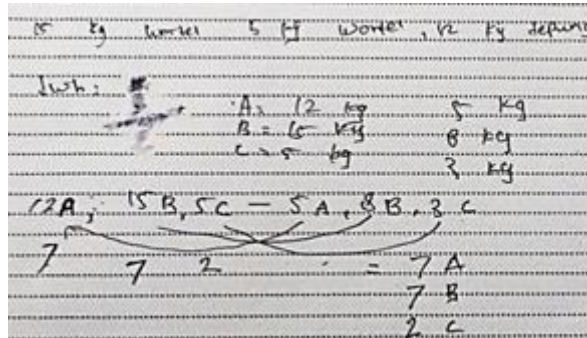 15 kg wortel 5 kg wortel, 12 kg
Jwb:
A = 12 kg 5 kg
B = 15 kg 8 kg
C = 5 kg 3 kg
12A, 15B, 5C - 5A, 8B, 3C
7 7 2 = 7A
7 B
2 C